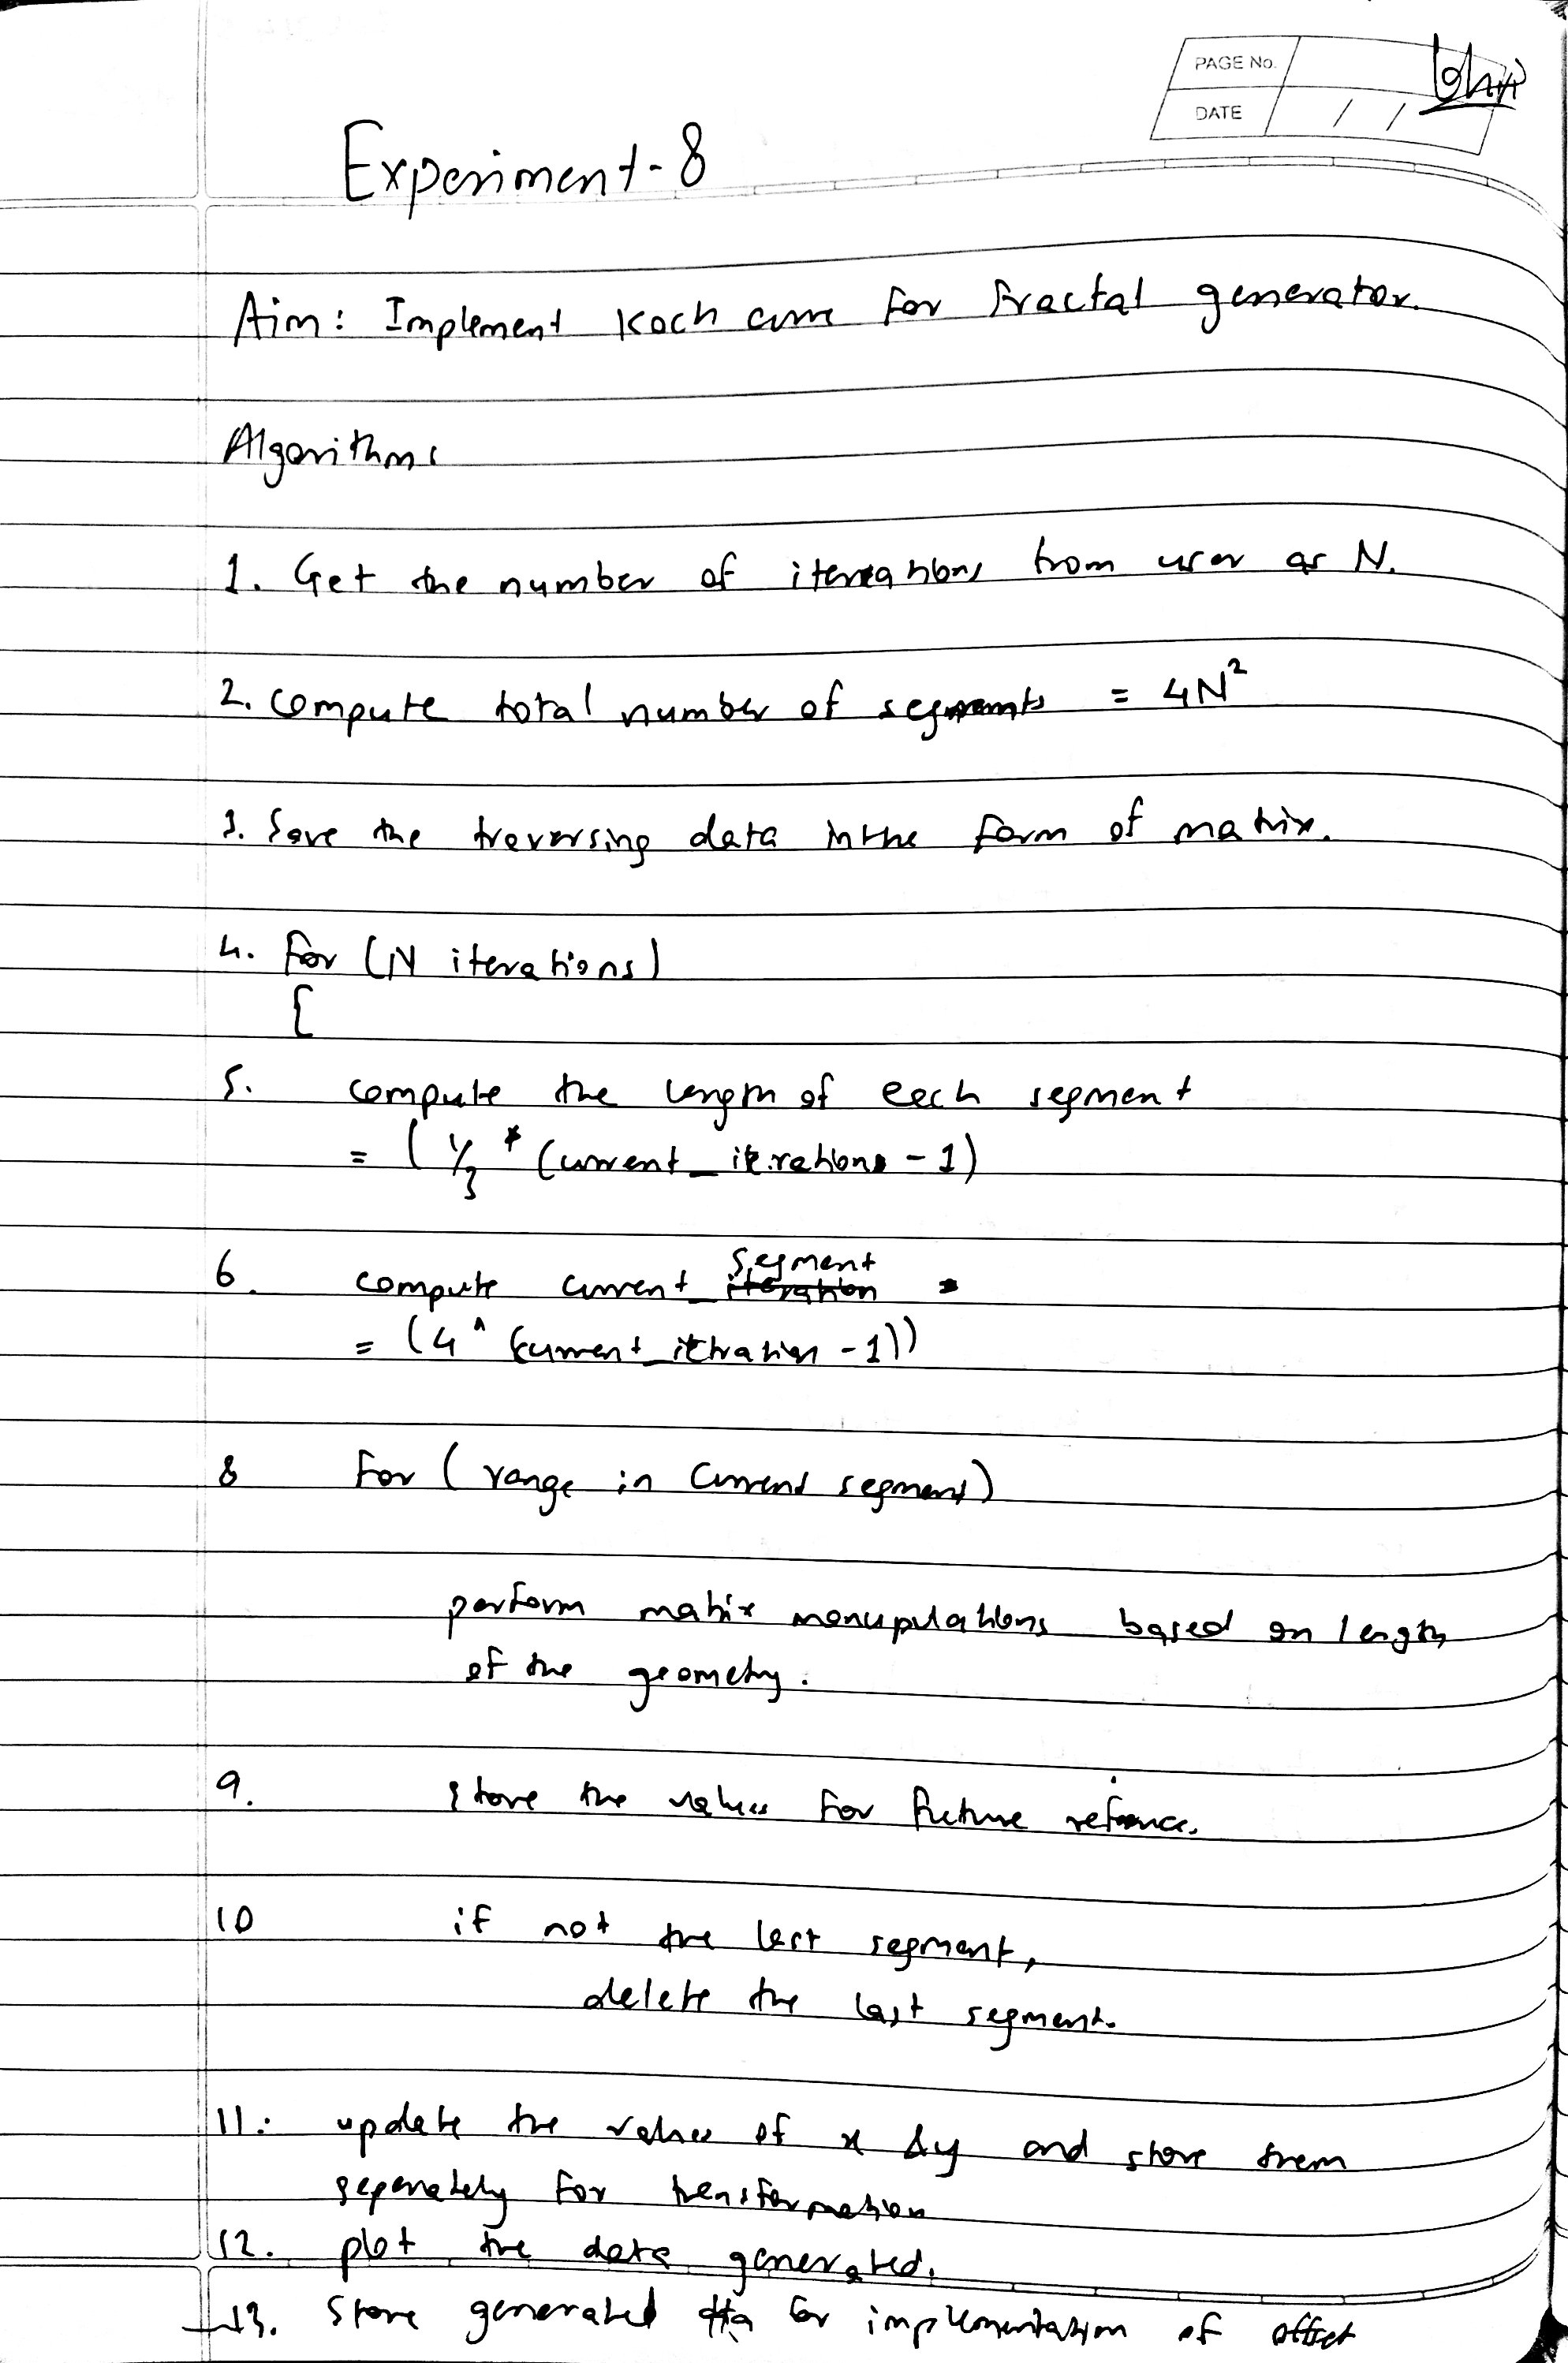 PAGE No.
DATE / /
Experiment-8
Aim: Implement Koch curve for fractal generator.
Algorithm:
1. Get the number of iterations from user as N.
2. Compute total number of segments = 4N²
3. Save the traversing data in the form of matrix.
4. for (N iterations)
{
5. compute the length of each segment
= (1/3 * (current_iterations - 1)
6. compute current_segment
= (4 ^ (current_iteration - 1))
8 for (range in current segment)
perform matrix manupulations based on length
of the geometry.
9. store the values for future refrence.
10 if not the last segment,
delete the last segment.
11. update the values of x & y and store them
seperately for transformation
12. plot the data generated.
13. Store generated for implementation of offset